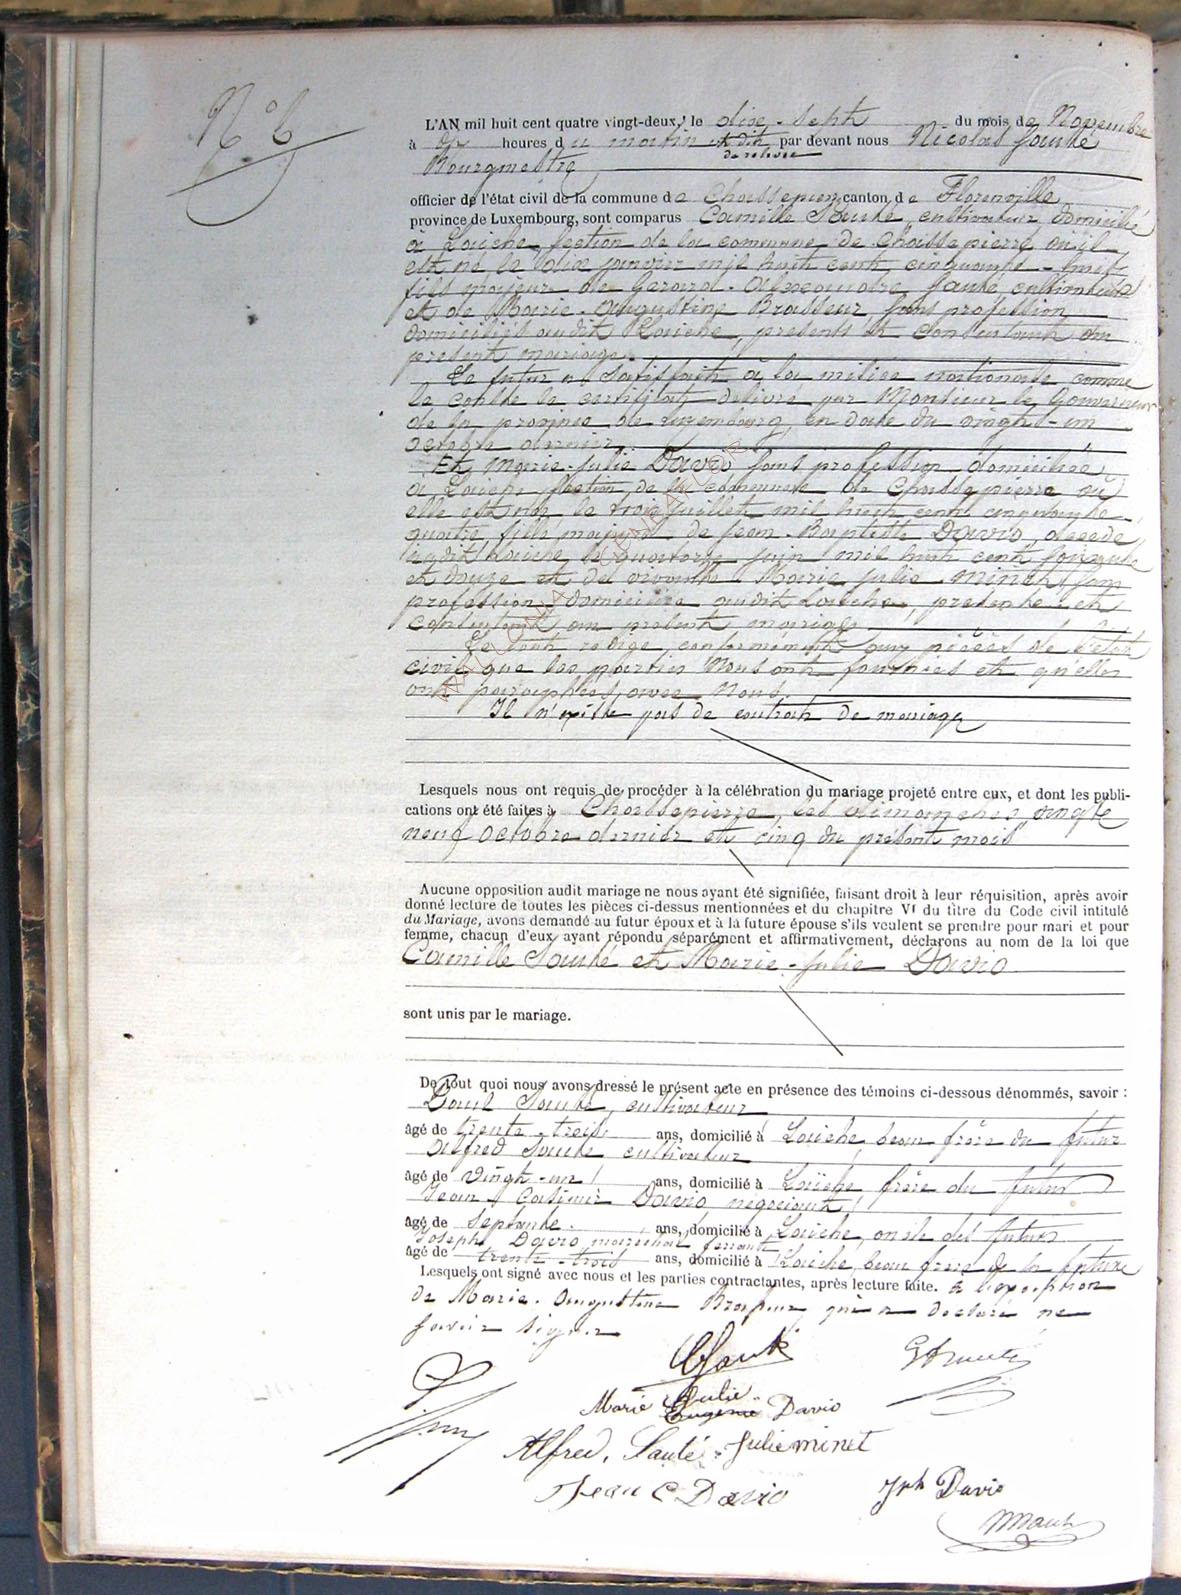 N° 6
L'AN mil huit cent quatre vingt-deux, le dixe-sept du mois de Novembre
à dix heures du matin par devant nous Nicolas Sauté
de relevée
Bourgmestre
officier de l'état civil de la commune de Chassepierre canton de Florenville
province de Luxembourg, sont comparus Camille Sauté, cultivateur, domicilié
à Laiche section de la commune de Chassepierre où il
est né le dix janvier mil huit cent cinquante-neuf
fils majeur de Gérard-Alexandre Sauté cultivateur
et de Marie-Augustine Brasseur, sans profession
domiciliés audit Laiche, présents et consentants au
présent mariage.
Le futur a satisfait à la milice nationale comme
le constate le certificat délivré par Monsieur le Gouverneur
de la province de Luxembourg, en date du vingt-un
octobre dernier
Et Marie-Julie Davio sans profession domiciliée
à Laiche section de la commune de Chassepierre où
elle est née le trois juillet mil huit cent cinquante
quatre, fille majeure de Jean-Baptiste Davio, décédé
audit Laiche le quatorze juin mil huit cent soixante
et douze et de vivante Marie Julie Minet, sans
profession, domiciliée audit Laiche, présente et
consentant au présent mariage
Le tout rédigé conformément aux pièces de l'état
civil que les parties Nous ont fournies et qu'elles
ont paraphées avec Nous.
Il n'existe pas de contrat de mariage
Lesquels nous ont requis de procéder à la célébration du mariage projeté entre eux, et dont les publi-
cations ont été faites à Chassepierre, les dimanches vingt
neuf octobre dernier et cinq du présent mois
Aucune opposition audit mariage ne nous ayant été signifiée, faisant droit à leur réquisition, après avoir
donné lecture de toutes les pièces ci-dessus mentionnées et du chapitre VI du titre du Code civil intitulé
du Mariage, avons demandé au futur époux et à la future épouse s'ils veulent se prendre pour mari et pour
femme, chacun d'eux ayant répondu séparément et affirmativement, déclarons au nom de la loi que
Camille Sauté et Marie-Julie Davio
sont unis par le mariage.
De tout quoi nous avons dressé le présent acte en présence des témoins ci-dessous dénommés, savoir :
Sauté, cultivateur
âgé de trente-trois ans, domicilié à Laiche, beau frère du futur
Alfred Sauté cultivateur
âgé de vingt-un ans, domicilié à Laiche, frère du futur
Jean Casimir Davio négociant
âgé de septante ans, domicilié à Laiche, oncle des futurs
Joseph Davio, maréchal ferrant
âgé de trente-trois ans, domicilié à Laiche, beau frère de la future
Lesquels ont signé avec nous et les parties contractantes, après lecture faite. à l'exception
de Marie-Augustine Brasseur, qui a déclaré ne
savoir signer
C Sauté
G A Sauté
Julie
Marie Eugénie Davio
Alfred, Sauté Julie minet
Jean C Davio
Jph Davio